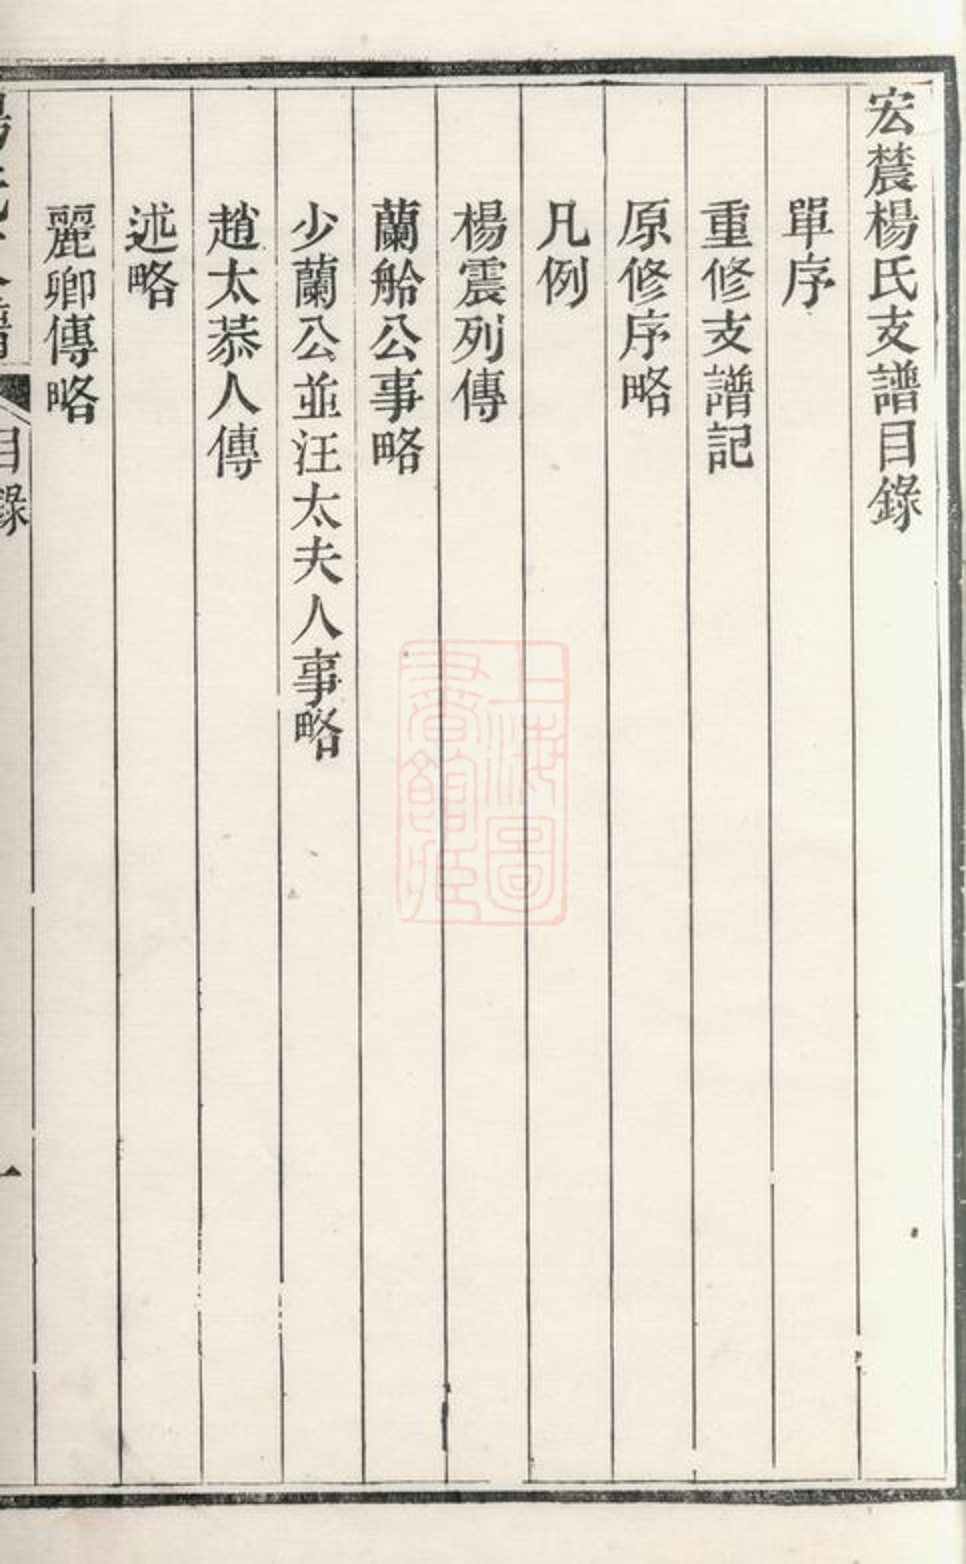 宏農楊氏支譜目錄
單序
重修支譜記
原修序略
凡例
楊震列傳
蘭舲公事略
少蘭公並汪太夫人事略
趙太恭人傳
述略
麗卿傳略
目錄
一
上海圖書館藏